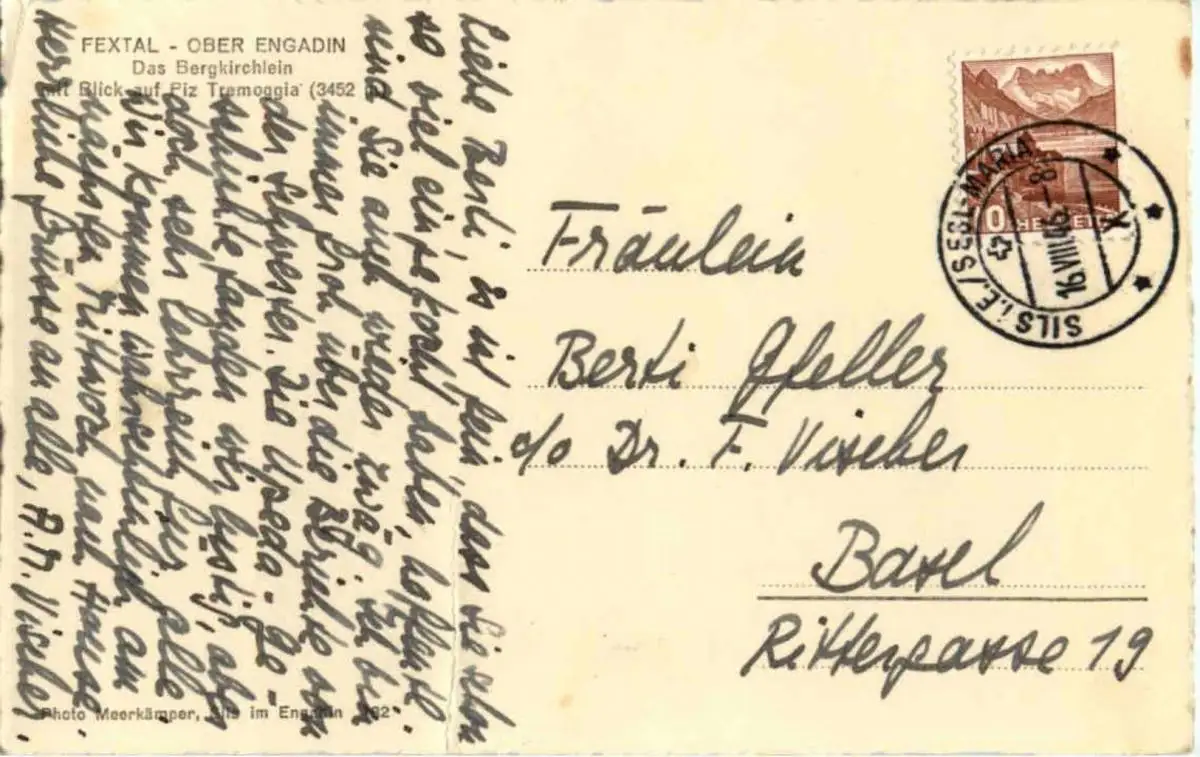 FEXTAL - OBER ENGADIN
Das Bergkirchlein
mit Blick auf Piz Tremoggia (3452 m)
Liebe Berti, es ist fein, dass Sie schon
so viel eingekocht haben, hoffentl.
sind Sie auch wieder zwäg. Ich bin
immer froh über die Berichte von
der Schwester. Die
schichte fanden wir lustig, aber
doch sehr lehrreich für alle
Wir kommen wahrscheinlich am
nächsten Mittwoch nach Hause.
Herzliche Grüsse an alle, A. M. Vischer.
Photo Meerkämper, Sils im Engadin
HELVETIA
SILS i.E./SEGL-MARIA
16.VIII.46.-8
X
Fräulein
Berti Gfeller
c/o Dr. F. Vischer
Basel
Rittergasse 19